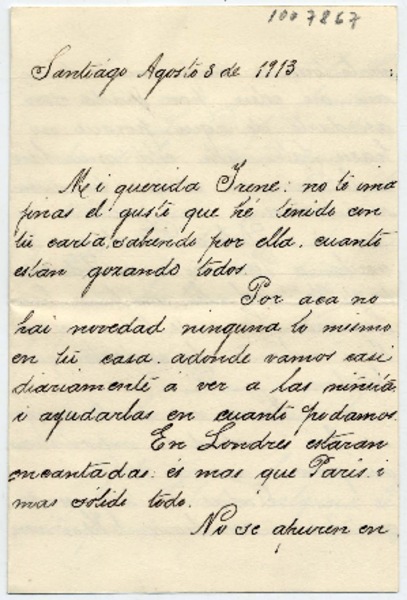 1007867
Santiago Agosto 3 de 1913
Mi querida Irene: no te ima
jinas el gusto que hé tenido con
tú carta, sabiendo por ella. cuanto
estan gozando todos.
Por aca no
hai novedad ninguna lo mismo
en tú casa. adonde vamos casi
diariamente á ver a las niñitas
i ayudarlas en cuanto podamos.
En Londres estaran
encantadas. és mas que Paris. i
mas sólido todo.
No se apuren en